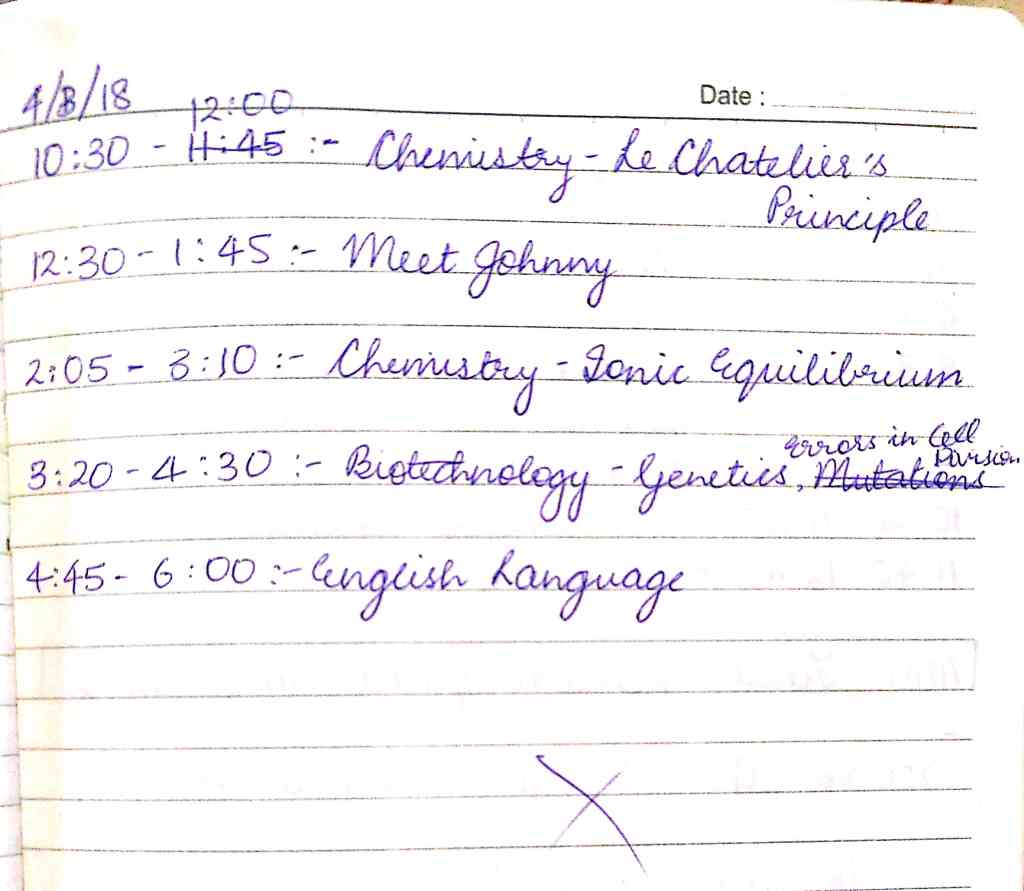 4/8/18
Date :
12:00
10:30 - 11:45 :- Chemistry - Le Chatelier's
Principle
12:30 - 1:45 :- Meet Johnny
2:05 - 3:10 :- Chemistry - Ionic Equilibrium
Errors in Cell
Division
3:20 - 4:30 :- Biotechnology - Genetics, Mutations
4:45 - 6:00 :- English Language